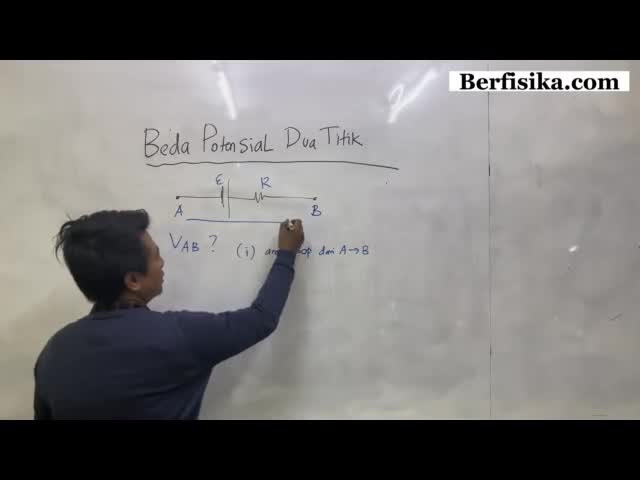 Berfisika.com
Beda Potensial Dua Titik
ε R
A B
VAB ? (i) dari A→B